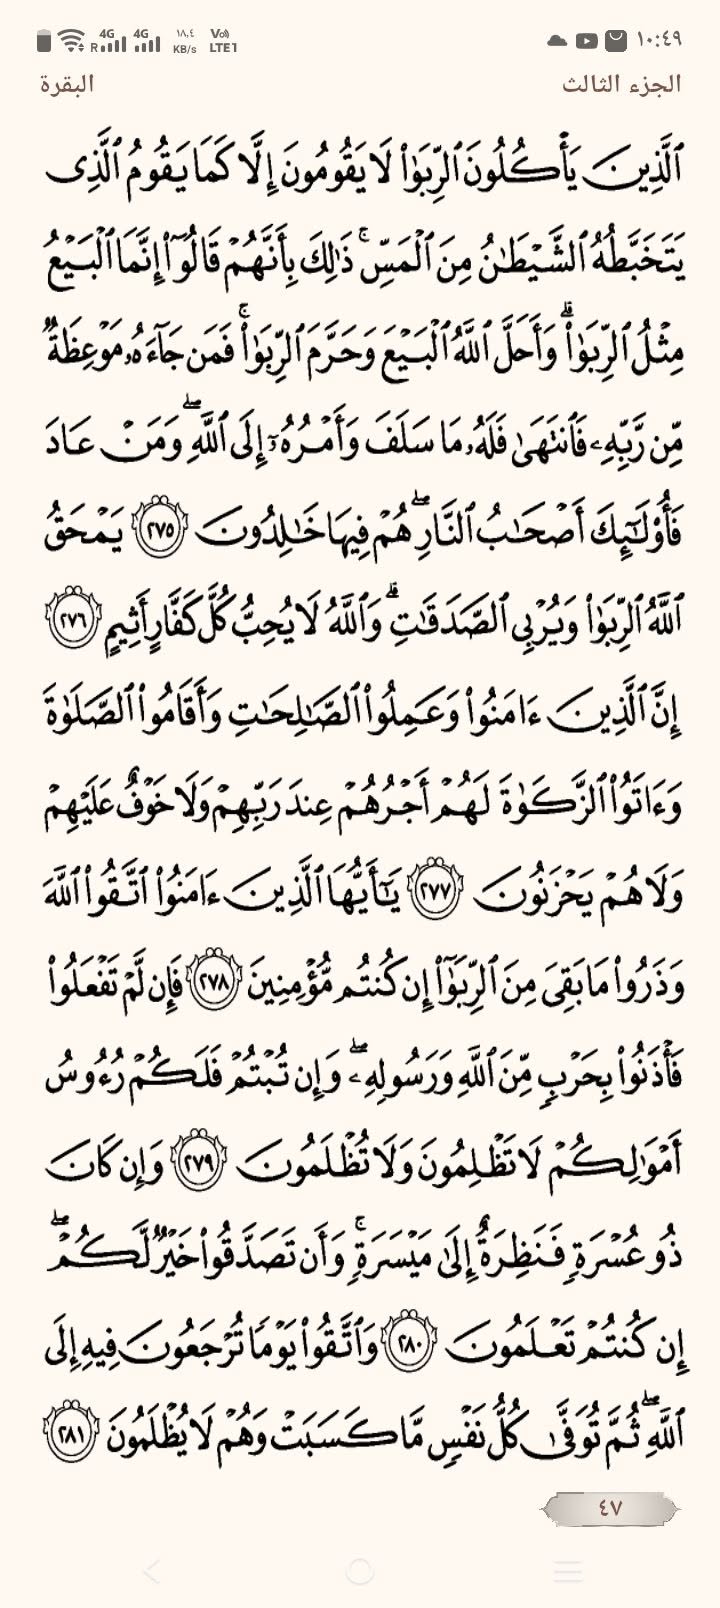 R 4G 4G ١٨٫٤ KB/s Vo) LTE1 ١٠:٤٩
الجزء الثالث البقرة
ٱلَّذِينَ يَأۡكُلُونَ ٱلرِّبَوٰاْ لَا يَقُومُونَ إِلَّا كَمَا يَقُومُ ٱلَّذِي
يَتَخَبَّطُهُ ٱلشَّيۡطَٰنُ مِنَ ٱلۡمَسِّۚ ذَٰلِكَ بِأَنَّهُمۡ قَالُوٓاْ إِنَّمَا ٱلۡبَيۡعُ
مِثۡلُ ٱلرِّبَوٰاْۗ وَأَحَلَّ ٱللَّهُ ٱلۡبَيۡعَ وَحَرَّمَ ٱلرِّبَوٰاْۚ فَمَن جَآءَهُۥ مَوۡعِظَةٞ
مِّن رَّبِّهِۦ فَٱنتَهَىٰ فَلَهُۥ مَا سَلَفَ وَأَمۡرُهُۥٓ إِلَى ٱللَّهِۖ وَمَنۡ عَادَ
فَأُوْلَٰٓئِكَ أَصۡحَٰبُ ٱلنَّارِۖ هُمۡ فِيهَا خَٰلِدُونَ ٢٧٥ يَمۡحَقُ
ٱللَّهُ ٱلرِّبَوٰاْ وَيُرۡبِي ٱلصَّدَقَٰتِۗ وَٱللَّهُ لَا يُحِبُّ كُلَّ كَفَّارٍ أَثِيمٍ ٢٧٦
إِنَّ ٱلَّذِينَ ءَامَنُواْ وَعَمِلُواْ ٱلصَّٰلِحَٰتِ وَأَقَامُواْ ٱلصَّلَوٰةَ
وَءَاتَوُاْ ٱلزَّكَوٰةَ لَهُمۡ أَجۡرُهُمۡ عِندَ رَبِّهِمۡ وَلَا خَوۡفٌ عَلَيۡهِمۡ
وَلَا هُمۡ يَحۡزَنُونَ ٢٧٧ يَٰٓأَيُّهَا ٱلَّذِينَ ءَامَنُواْ ٱتَّقُواْ ٱللَّهَ
وَذَرُواْ مَا بَقِيَ مِنَ ٱلرِّبَوٰٓاْ إِن كُنتُم مُّؤۡمِنِينَ ٢٧٨ فَإِن لَّمۡ تَفۡعَلُواْ
فَأۡذَنُواْ بِحَرۡبٖ مِّنَ ٱللَّهِ وَرَسُولِهِۦۖ وَإِن تُبۡتُمۡ فَلَكُمۡ رُءُوسُ
أَمۡوَٰلِكُمۡ لَا تَظۡلِمُونَ وَلَا تُظۡلَمُونَ ٢٧٩ وَإِن كَانَ
ذُو عُسۡرَةٖ فَنَظِرَةٌ إِلَىٰ مَيۡسَرَةٖۚ وَأَن تَصَدَّقُواْ خَيۡرٞ لَّكُمۡۖ
إِن كُنتُمۡ تَعۡلَمُونَ ٢٨٠ وَٱتَّقُواْ يَوۡمٗا تُرۡجَعُونَ فِيهِ إِلَى
ٱللَّهِۖ ثُمَّ تُوَفَّىٰ كُلُّ نَفۡسٖ مَّا كَسَبَتۡ وَهُمۡ لَا يُظۡلَمُونَ ٢٨١
٤٧